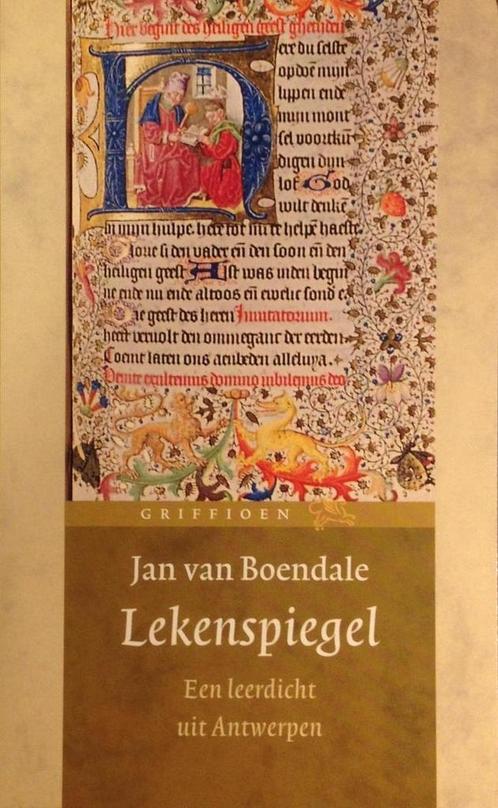 Hier begint des heiligen geest ghetiden
ere du selste
op doe mijn
lippen ende
mijn mont
sel voortkū
digen dijn
lof God
wilt denkē
in mijn hulpe. here tot mi te helpē haeste
Glorie si den vader eñ den soon eñ den
heiligen geest Alst was inden begin
ne ende nu ende altoos eñ ewelic sond e.
geest des heren Inuitatorium.
heeft veruolt den ommeganc der eerden.
Coemt laten ons aenbeden alleluya.
Venite exultemus domino iubilemus deo
GRIFFIOEN
Jan van Boendale
Lekenspiegel
Een leerdicht
uit Antwerpen